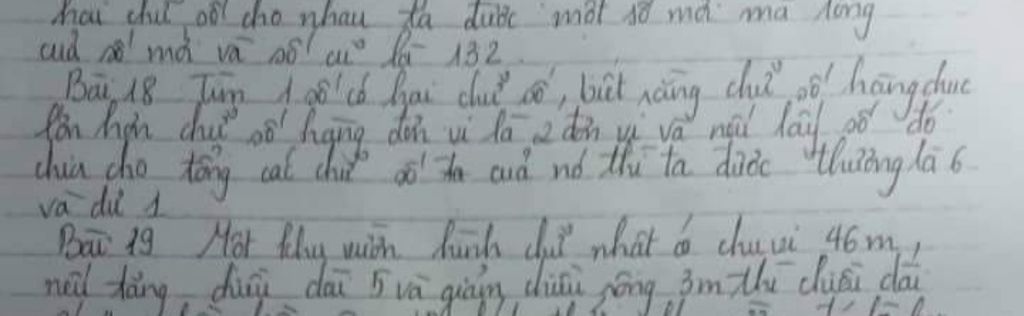 hai chữ số cho nhau ta được một số mới mà tổng
của số mới và số cũ là 132
Bài 18 Tìm 1 số có hai chữ số, biết rằng chữ số hàng chục
lớn hơn chữ số hạng đơn vị là 2 đơn vị và nếu lấy số đó
chia cho tổng các chữ số ta của nó thì ta được thương là 6
và dư 1
Bài 19 Một khu vườn hình chữ nhất có chu vi 46m,
nếu tăng chiều dài 5 và giảm chiều rộng 3m thì chiều dài